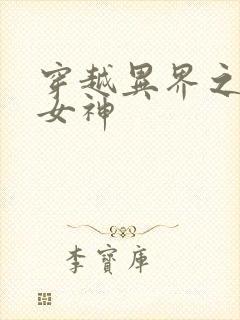 穿越異界之
女神
李寶庫